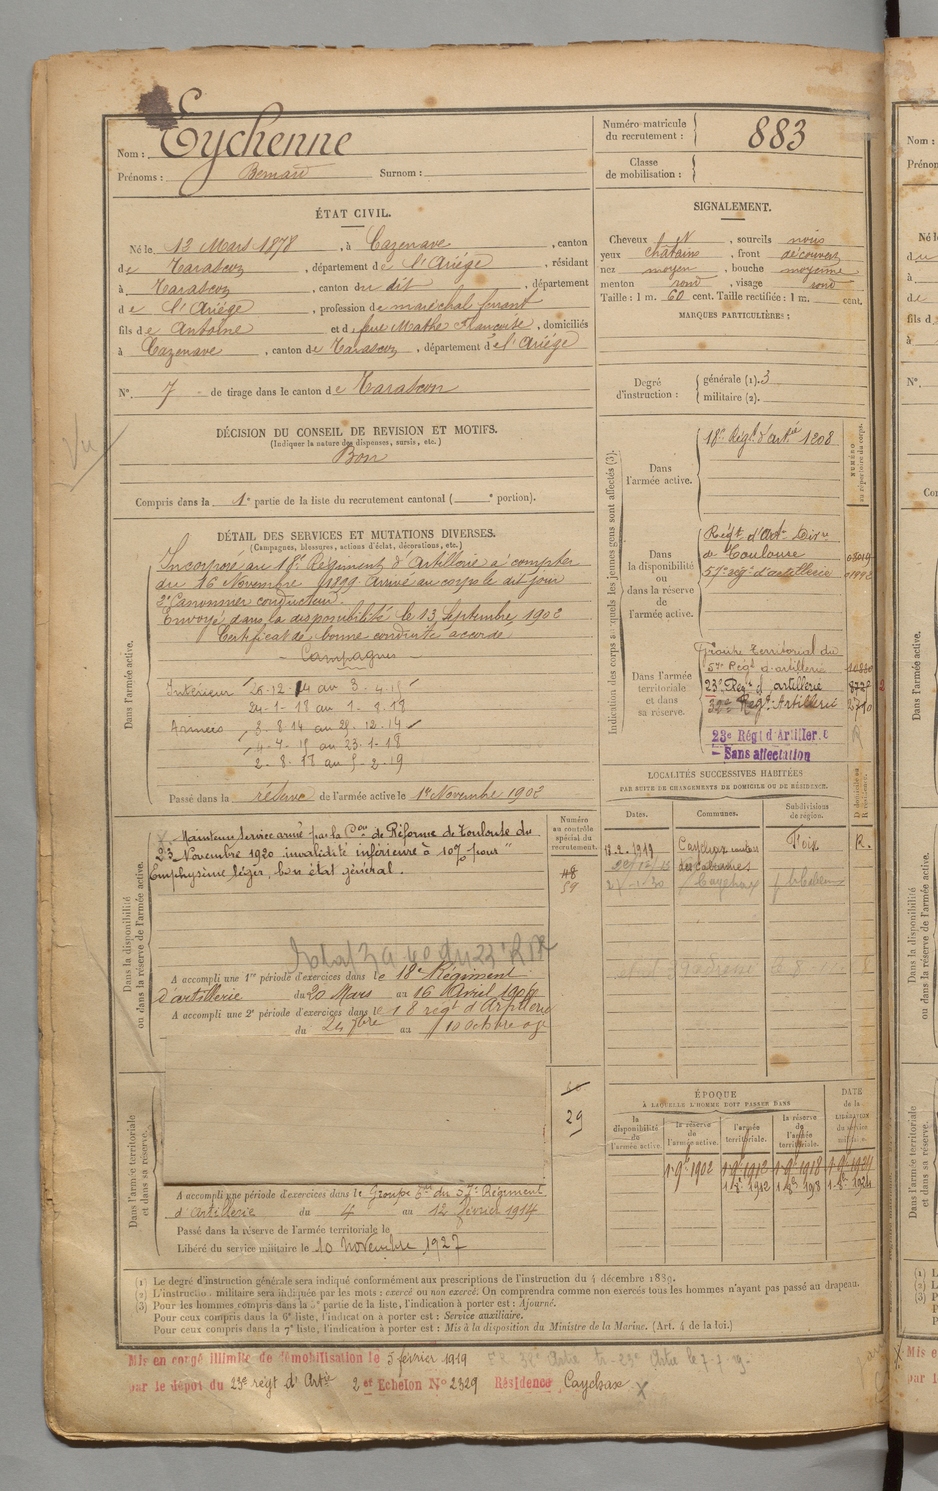 Nom : Eychenne
Prénoms : Bernard Surnom :
Numéro matricule du recrutement : 883
Classe de mobilisation :
ÉTAT CIVIL.
Né le 13 Mars 1878, à Cazenave, canton
de Tarascon, département de l'Ariége, résidant
à Tarascon, canton du dit, département
de l'Ariége, profession de maréchal ferrant
fils de Antoine et de feue Mathe Françoise, domiciliés
à Cazenave, canton de Tarascon, département de l'Ariége
N° 7 de tirage dans le canton de Tarascon
SIGNALEMENT.
Cheveux N, sourcils noirs
yeux chatains, front découvert
nez moyen, bouche moyenne
menton rond, visage rond
Taille : 1 m. 60 cent. Taille rectifiée : 1 m. cent.
MARQUES PARTICULIÈRES :
Degré d'instruction : générale (1). 3
militaire (2).
DÉCISION DU CONSEIL DE REVISION ET MOTIFS.
(Indiquer la nature des dispenses, sursis, etc.)
Bon
Vu
Compris dans la 1e partie de la liste du recrutement cantonal ( e portion).
DÉTAIL DES SERVICES ET MUTATIONS DIVERSES.
(Campagnes, blessures, actions d'éclat, décorations, etc.)
Dans l'armée active.
Incorporé au 18e Régiment d'Artillerie à compter
du 16 Novembre 1899. Arrivé au corps le dit jour
2e Canonnier conducteur.
Envoyé dans la disponibilité le 13 Septembre 1902
Certificat de bonne conduite accordé
Campagnes
Intérieur 26-12-14 au 3-4-15
24-1-18 au 1-8-18
Armées 3-8-14 au 25-12-14
4-4-15 au 23-1-18
2-8-18 au 5-2-19
Passé dans la réserve de l'armée active le 1er Novembre 1902
Indication des corps auxquels les jeunes gens sont affectés (3).
NUMÉRO au répertoire du corps.
Dans l'armée active.
18e Régt d'artie 1208
Dans la disponibilité ou dans la réserve de l'armée active.
Régt d'Artie Divre
de Toulouse
57e régt d'artillerie
Dans l'armée territoriale et dans sa réserve.
Groupe territorial du
57e Régt d'artillerie
23e Régt d'artillerie
32e Régt Artillerie 2710
23e Régt d'Artillerie
Sans affectation
LOCALITÉS SUCCESSIVES HABITÉES
PAR SUITE DE CHANGEMENTS DE DOMICILE OU DE RÉSIDENCE.
Dates. Communes. Subdivisions de région. D domicile ou R résidence.
13.2.1919 Caychax canton Foix R.
des Cabannes
Caychax
Dans la disponibilité ou dans la réserve de l'armée active.
Numéro au contrôle spécial du recrutement.
Maintenu service armé par la Con de Réforme de Toulouse du
23 Novembre 1920 invalidité inférieure à 10% pour "
Emphysème léger, bon état général.
59
A accompli une 1re période d'exercices dans le 18e Régiment
d'artillerie du 20 Mars au 16 Avril 1906
A accompli une 2e période d'exercices dans le 18 régt d'Artillerie
du 24 7bre au 10 octobre
Dans l'armée territoriale et dans sa réserve.
29
A accompli une période d'exercices dans le Groupe Terr du 57e Régiment
d'Artillerie du 4 au 12 février 1914
Passé dans la réserve de l'armée territoriale le
Libéré du service militaire le 10 novembre 1927
ÉPOQUE
À LAQUELLE L'HOMME DOIT PASSER DANS
la disponibilité de l'armée active. la réserve de l'armée active. l'armée territoriale. la réserve de l'armée territoriale.
DATE de la LIBÉRATION du service militaire.
1 9e 1902 1 9e 1912 1 9e 1918 1 9e 1924
(1) Le degré d'instruction générale sera indiqué conformément aux prescriptions de l'instruction du 4 décembre 1889.
(2) L'instruction militaire sera indiquée par les mots : exercé ou non exercé. On comprendra comme non exercés tous les hommes n'ayant pas passé au drapeau.
(3) Pour les hommes compris dans la 5e partie de la liste, l'indication à porter est : Ajourné.
Pour ceux compris dans la 6e liste, l'indication à porter est : Service auxiliaire.
Pour ceux compris dans la 7e liste, l'indication à porter est : Mis à la disposition du Ministre de la Marine. (Art. 4 de la loi.)
Mis en congé illimité de démobilisation le 5 février 1919
par le dépôt du 23e régt d'Artie 2e Echelon N° 2329 Résidence Caychax